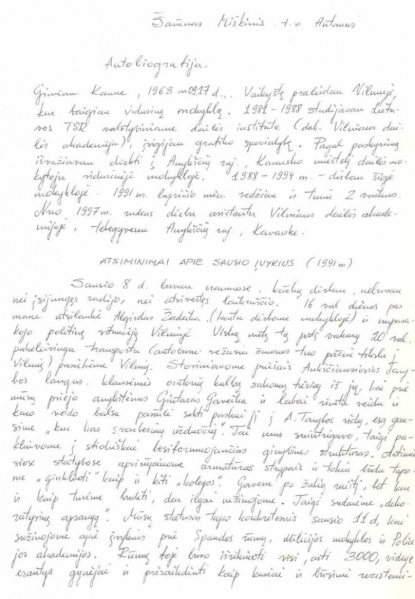 Šarūnas Miškinis t.v. Antanas
Autobiografija.
Gimiau Kaune, 1963 m 0917 d., Vaikystę praleidau Vilniuje,
kur baigiau vidurinę mokyklą. 1981-1988 studijavau Lietu-
vos TSR valstybiniame dailės institute (dab. Vilniaus dai-
lės akademija), įsigijau grafiko specialybę. Pagal paskyrimą
išvažiavau dirbti į Anykščių raj, Kavarsko miestelį dailės mo-
kytoju vidurinėje mokykloje. 1988-1994 m. - dirbau šioje
mokykloje. 1991 m. lapkričio mėn. vedžiau ir turiu 2 vaikus.
Nuo 1997 m. rudens dirbu asistentu Vilniaus dailės akade-
mijoje, tebegyvenu Anykščių raj., Kavarske.
ATSIMINIMAI APIE SAUSIO ĮVYKIUS (1991 m)
Sausio 8 d. buvau namuose, kažką dirbau, nebuvau
nei įsijungęs radijo, nei atsivertęs laikraščio. 16 val dienos pas
mane atsilankė Algirdas (kartu dirbome mokykloje) ir nupasa-
kojo politinę situaciją Vilniuje. Viską metę tą patį vakarą 20 val.
pakeleivingu transportu (autobusu vežusiu žmones tuo pačiu tikslu į
Vilnių) pasiekėme Vilnių. Stoviniavome priešais Aukščiausiosios Tary-
bos langus, klausėmės oratorių kalbų sakomų tiesiog iš jų, kai prie
mūsų priėjo anykštėnas Gintaras ir labai rimtu veidu ir
kuo vado balsu paprašė sekti paskui jį į A-Tarybos vidų, esą gau-
sime „kur kas svarbesnių užduočių". Tai mus suintrigavo. Taigi pa-
kliuvome į stichiškai besiformuojančias gynybines struktūras. Artimiau-
siose statybose apsirūpinome armatūros strypais ir tokiu būdu tapo-
me „ginkluoti" kaip ir kiti „kolegos". Gavome po žalią raištį, bet kur
ir kaip turime budėti, dar ilgai nežinojome. Taigi sudarėme „deko-
ratyvinę apsaugą". Mūsų statusas tapo konkretesnis sausio 11 d, kai
sužinojome apie įvykius prie Spaudos rūmų, milicijos mokyklos ir Polici-
jos akademijos. Rūmų tąją buvo išrikiuoti visi, arti 3000, viduje
esantys gynėjai ir prisaikdinti kaip kariai ir būsimi rezistenci-